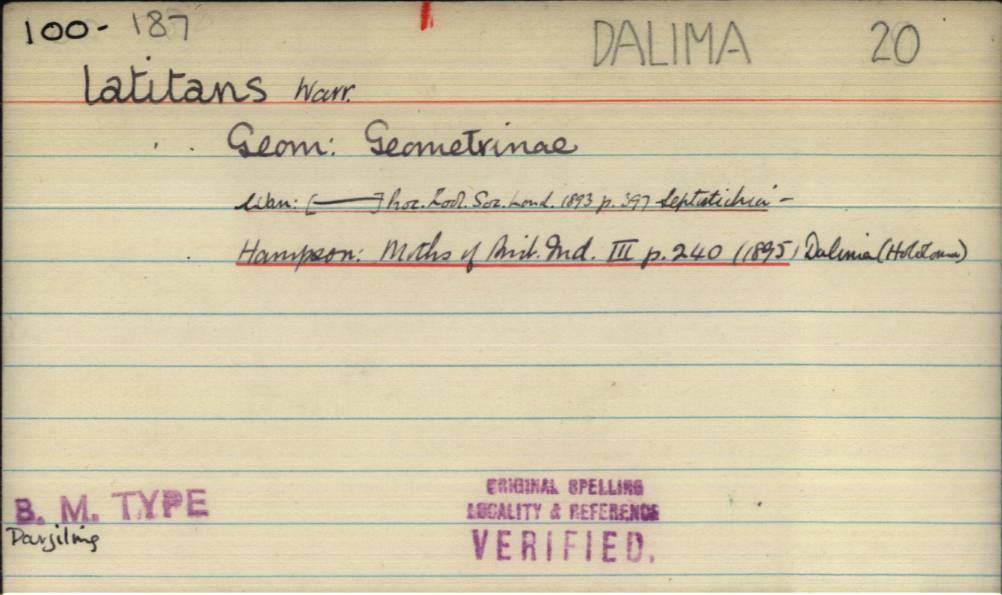 100- 187
DALIMA 20
latitans Warr.
Geom: Geometrinae
Warr: [——] Proc. Zool. Soc. Lond. 1893 p. 397 Leptostichia -
Hampson: Moths of Brit. Ind. III p. 240 (1895) Dalima (Hololoma)
B. M. TYPE
Darjiling
ORIGINAL SPELLING
LOCALITY & REFERENCE
VERIFIED.